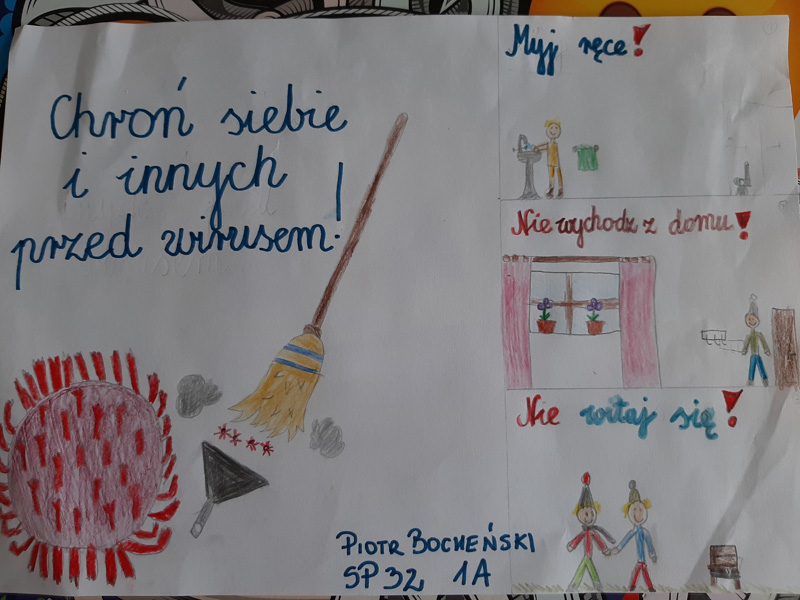 Chroń siebie
i innych
przed wirusem!
Myj ręce!
Nie wychodź z domu!
Nie witaj się!
Piotr Bocheński
SP 32 1A